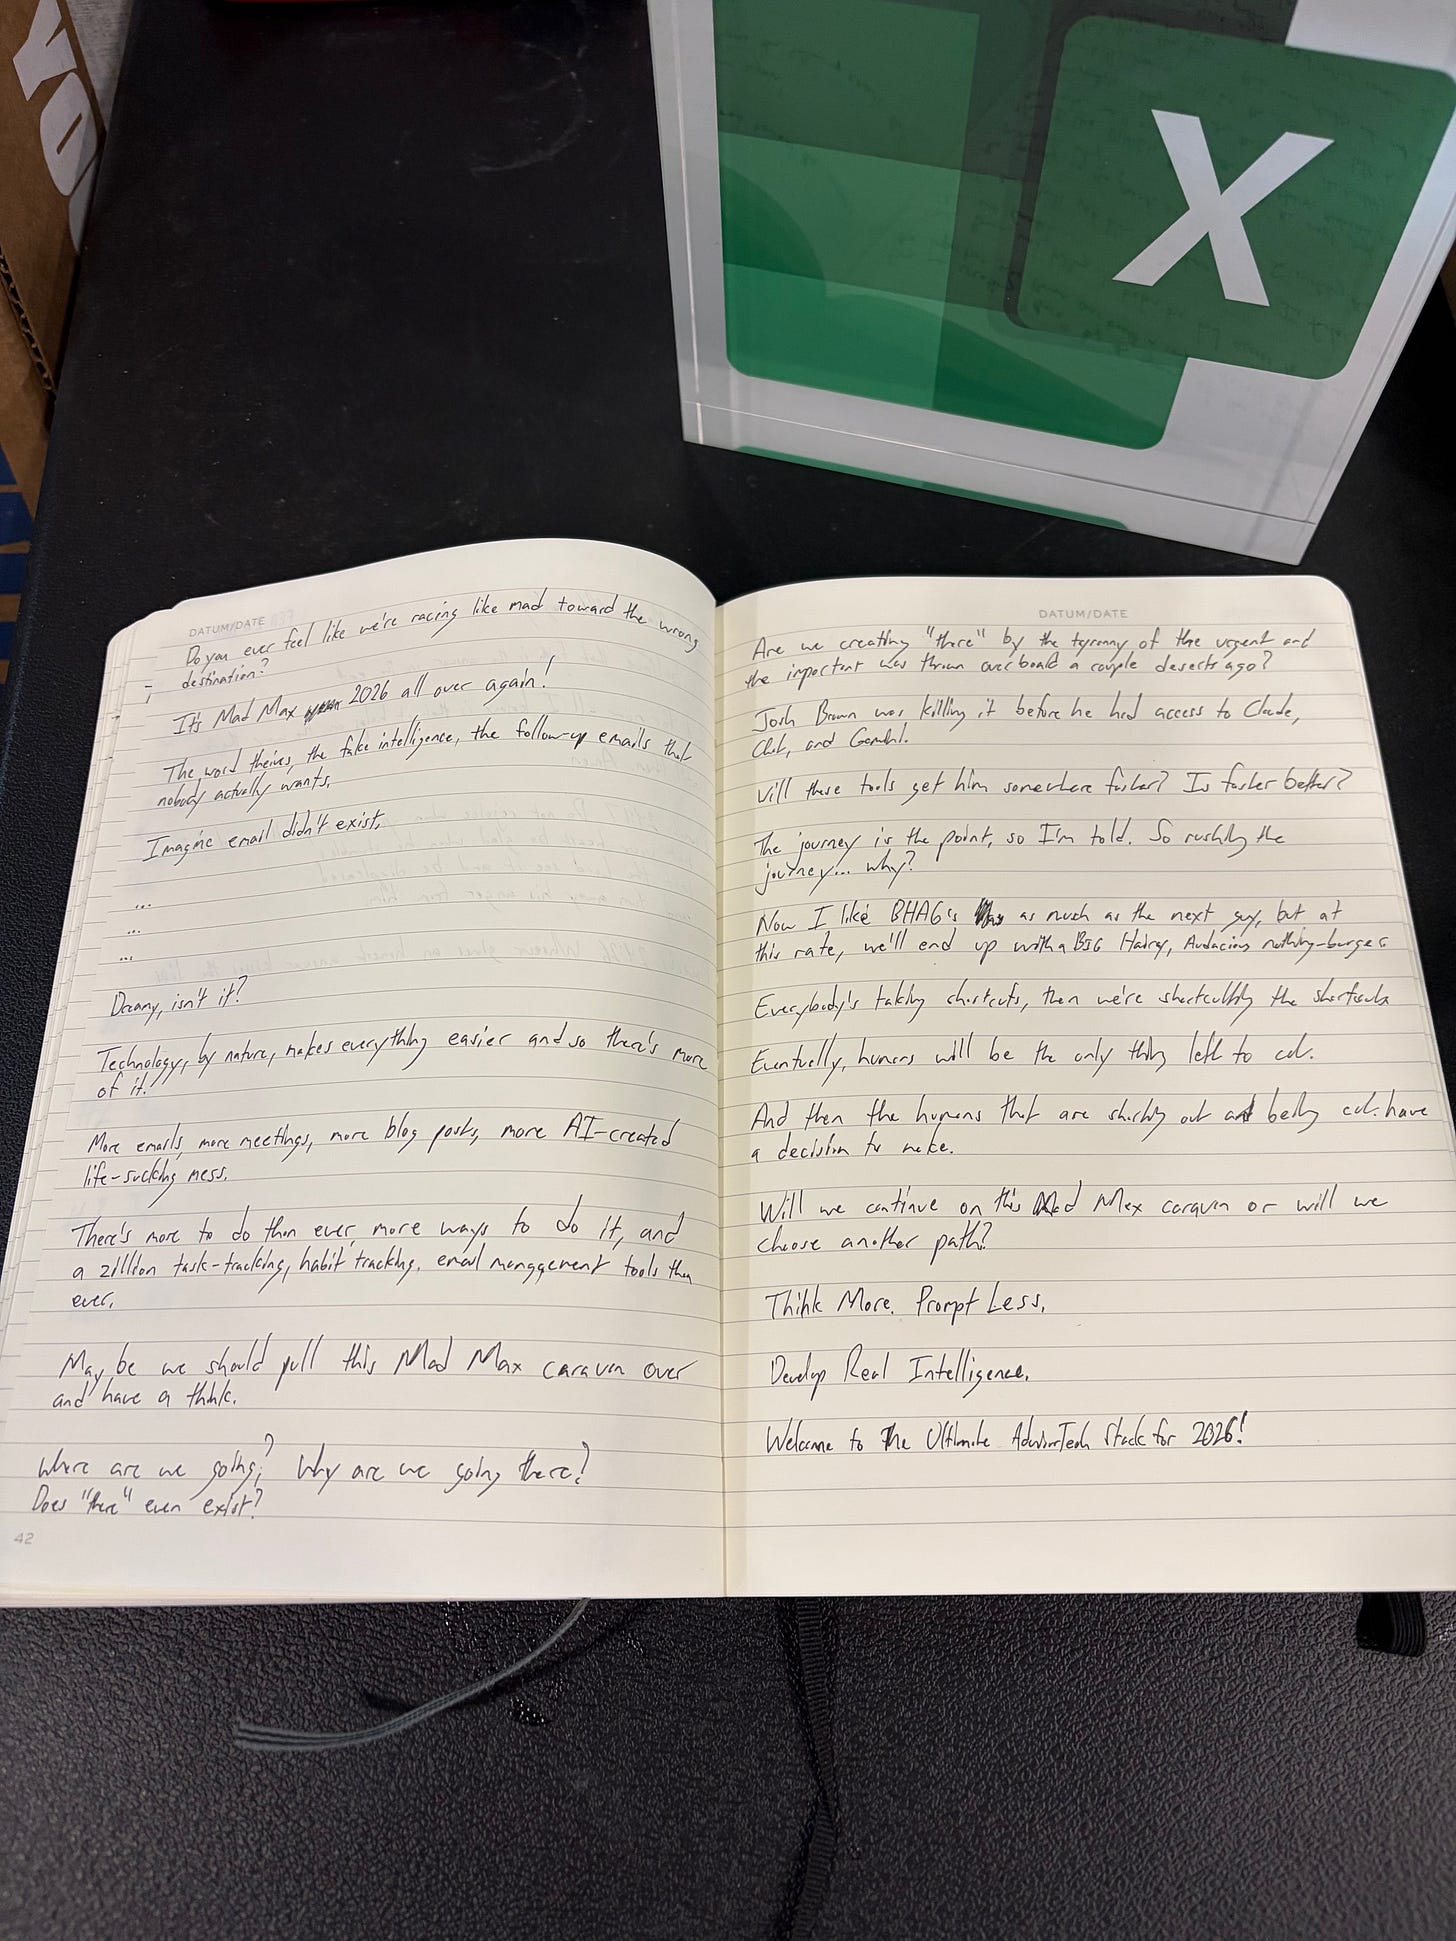 X
DATUM/DATE
Do you ever feel like we're racing like mad toward the wrong
destination?
It's Mad Max 2026 all over again!
The word theives, the fake intelligence, the follow-up emails that
nobody actually wants.
Imagine email didn't exist.
...
...
...
Dreamy, isn't it?
Technology, by nature, makes everything easier and so there's more
of it!
More emails, more meetings, more blog posts, more AI-created
life-sucking mess.
There's more to do than ever, more ways to do it, and
a zillion task-tracking, habit tracking, email management tools than
ever.
Maybe we should pull this Mad Max caravan over
and have a think.
Where are we going? Why are we going there?
Does "there" even exist?
42
DATUM/DATE
Are we creating "there" by the tyranny of the urgent and
the important was thrown overboard a couple deserts ago?
Josh Brown was killing it before he had access to Claude,
Chat, and
Will these tools get him somewhere faster? Is faster better?
The journey is the point, so I'm told. So rushing the
journey... why?
Now I like BHAG's as much as the next guy, but at
this rate, we'll end up with a BIG Hairy, Audacious nothing-burger
Everybody's taking shortcuts, then we're shortcutting the shortcuts
Eventually, humans will be the only thing left to cut.
And then the humans that are shorting out and being cut have
a decision to make.
Will we continue on this Mad Max caravan or will we
choose another path?
Think More. Prompt Less.
Develop Real Intelligence.
Welcome to The Ultimate AdvisorTech Stack for 2026!